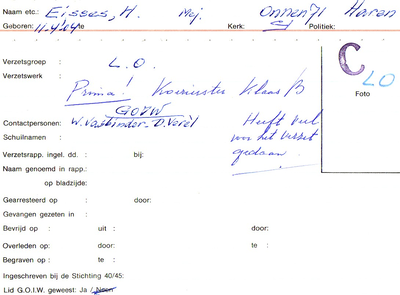 Naam etc.: Eisses, H. Mej. Onnen 71 Haren
Geboren: 11.4.'04 te Kerk: Politiek:
C
LO
Foto
Verzetsgroep : L.O.
Verzetswerk : Prima! Koerierster Klaas B
GOIW
Contactpersonen: W. Vastbinder - D. Verël
Heeft veel
voor het verzet
gedaan.
Schuilnamen :
Verzetsrapp. ingel. dd. : bij:
Naam genoemd in rapp.:
op bladzijde:
Gearresteerd op : door:
Gevangen gezeten in :
Bevrijd op : uit : door:
Overleden op : door: te :
Begraven op : te :
Ingeschreven bij de Stichting 40/45:
Lid G.O.I.W. geweest: Ja / Neen